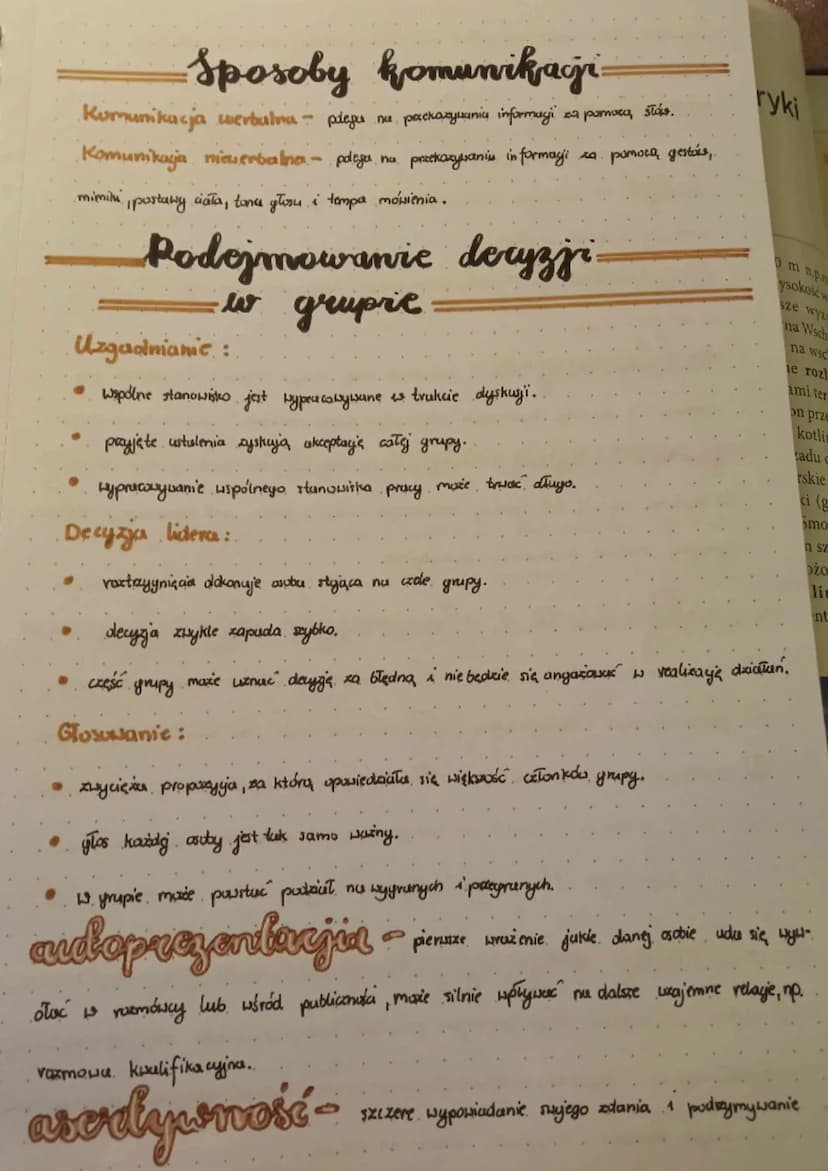 Sposoby komunikacji
Komunikacja werbalna - polega na przekazywaniu informacji za pomocą słów.
Komunikacja niewerbalna - polega na przekazywaniu informacji za pomocą gestów,
mimiki, postawy ciała, tonu głosu i tempa mówienia.
Podejmowanie decyzji
w grupie
Uzgadnianie:
• wspólne stanowisko jest wypracowywane w trakcie dyskusji.
• przyjęte ustalenia zyskują akceptację całej grupy.
• wypracowywanie wspólnego stanowiska pracy może trwać długo.
Decyzja lidera:
• rozstrzygnięcia dokonuje osoba stojąca na czele grupy.
• decyzja zwykle zapada szybko.
• część grupy może uznać decyzję za błędną i nie będzie się angażować w realizację działań.
Głosowanie:
• zwycięża propozycja, za którą opowiedziała się większość członków grupy.
• głos każdej osoby jest tak samo ważny.
• w grupie może powstać podział na wygranych i przegranych.
autoprezentacja - pierwsze wrażenie jakie danej osobie uda się wyw-
ołać w rozmówcy lub wśród publiczności, może silnie wpływać na dalsze wzajemne relacje, np.
rozmowa kwalifikacyjna.
asertywność - szczere wypowiadanie swojego zdania i podtrzymywanie
ryki
0 m n.p.m
ysokość w
sze wyż
na Wsch
na wsc
ne rozl
ami ter
on prze
kotli
adu
rskie
ki (g
Smo
n sz
ożo
lin
ent